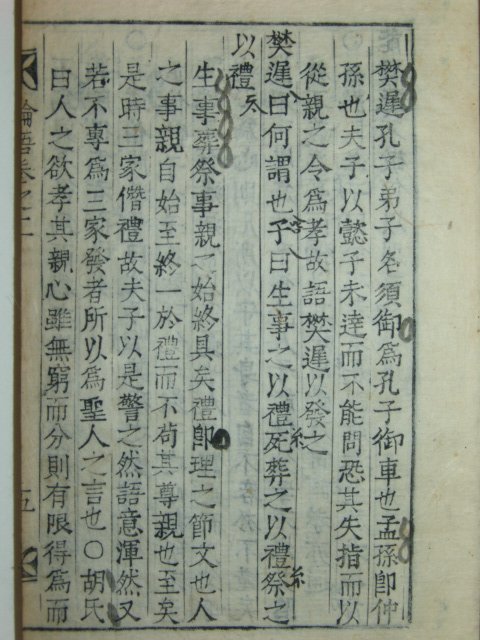 樊遲孔子弟子名須御爲孔子御車也孟孫卽仲
孫也夫子以懿子未達而不能問恐其失指而以
從親之令爲孝故語樊遲以發之
樊遲曰何謂也子曰生事之以禮死葬之以禮祭之
以禮
生事葬祭事親之始終具矣禮卽理之節文也人
之事親自始至終一於禮而不苟其尊親也至矣
是時三家僭禮故夫子以是警之然語意渾然又
若不專爲三家發者所以爲聖人之言也○胡氏
曰人之欲孝其親心雖無窮而分則有限得爲而
論語卷之二
五